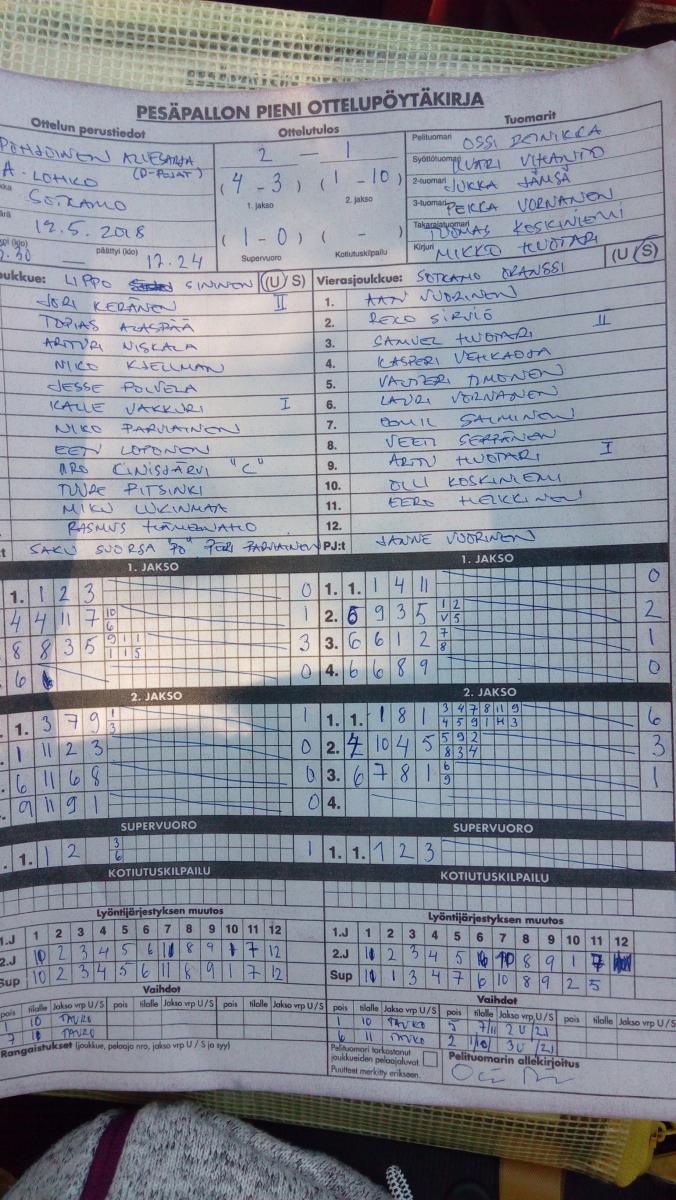 PESÄPALLON PIENI OTTELUPÖYTÄKIRJA
Ottelun perustiedot
Ottelutulos
Tuomarit
POHJOINEN ALUESARJA
(D-POJAT)
A. LOHIKO
SOTKAMO
12.5.2018
päättyi (klo) 17.24
2 — 1
(4 - 3) (1 - 10)
1. jakso 2. jakso
(1 - 0) ( - )
Supervuoro Kotiutuskilpailu
Pelituomari OSSI
Syöttötuomari
2-tuomari JUKKA JÄMSÄ
3-tuomari PEKKA VORNANEN
Takarajatuomari TUOMAS KOSKINIEMI
Kirjuri MIKKO HUOTARI
(U/S)
LIPPO SININEN (U/S)
JORI KERÄNEN II
TOPIAS ALASPÄÄ
ARTTURI NISKALA
NIKO KJELLMAN
JESSE POLVELA
KALLE VAKKURI I
NIKO PARVIAINEN
EETU LOPONEN
ARO KINISJÄRVI "C"
TUURE PITSINKI
MIKU LUKINMAA
RASMUS HÄMEENAHO
SAKU SUORSA "PO" PETRI PARVIAINEN
Vierasjoukkue: SOTKAMO ORANSSI
1. VUORINEN
2. REKO SIRVIÖ
3. SAMUEL HUOTARI II
4. KASPERI
5. VALTTERI TIMONEN
6. LAURI VORNANEN
7. SALMINEN
8. VEETI SEPPÄNEN
9. ARTTU HUOTARI I
10. OLLI KOSKINIEMI
11. EERO HEIKKINEN
12.
PJ:t JANNE VUORINEN
1. JAKSO
1. 1 2 3 0
4 4 11 7 10 6 1
8 8 3 5 9 1 1 1 1 5 3
6 0
1. JAKSO
1. 1. 1 4 11 0
2. 6 9 3 5 1 2 V 5 2
3. 6 6 1 2 7 8 1
4. 6 6 8 9 0
2. JAKSO
1. 3 7 9 1 3 1
1 11 2 3 0
6 11 6 8 0
9 11 9 1 0
2. JAKSO
1. 1. 1 8 1 3 4 7 8 11 9 4 5 9 1 H 3 6
2. 4 10 4 5 5 9 2 8 3 4 3
3. 6 7 8 1 6 9 1
4.
SUPERVUORO
1. 1 2 3 6 1
SUPERVUORO
1. 1. 1 2 3
KOTIUTUSKILPAILU
KOTIUTUSKILPAILU
Lyöntijärjestyksen muutos
1.J 1 2 3 4 5 6 7 8 9 10 11 12
2.J 10 2 3 4 5 6 11 8 9 1 7 12
Sup 10 2 3 4 5 6 11 8 9 1 7 12
Lyöntijärjestyksen muutos
1.J 1 2 3 4 5 6 7 8 9 10 11 12
2.J 11 2 3 4 5 6 10 8 9 1 7
Sup 11 1 3 4 7 6 10 8 9 2 5
Vaihdot
pois tilalle Jakso vrp U/S pois tilalle Jakso vrp U/S
1 10 TAUKO
7 11 TAUKO
Rangaistukset (joukkue, pelaaja nro, jakso vrp U / S ja syy)
Vaihdot
pois tilalle Jakso vrp U/S pois tilalle Jakso vrp U/S pois tilalle
1 10 TAUKO 5 7/11 2U/2J
6 11 TAUKO 2 1/10/ 3U/2J
Pelituomari tarkastanut joukkueiden pelaajaluvat.
Puutteet merkitty erikseen.
Pelituomarin allekirjoitus